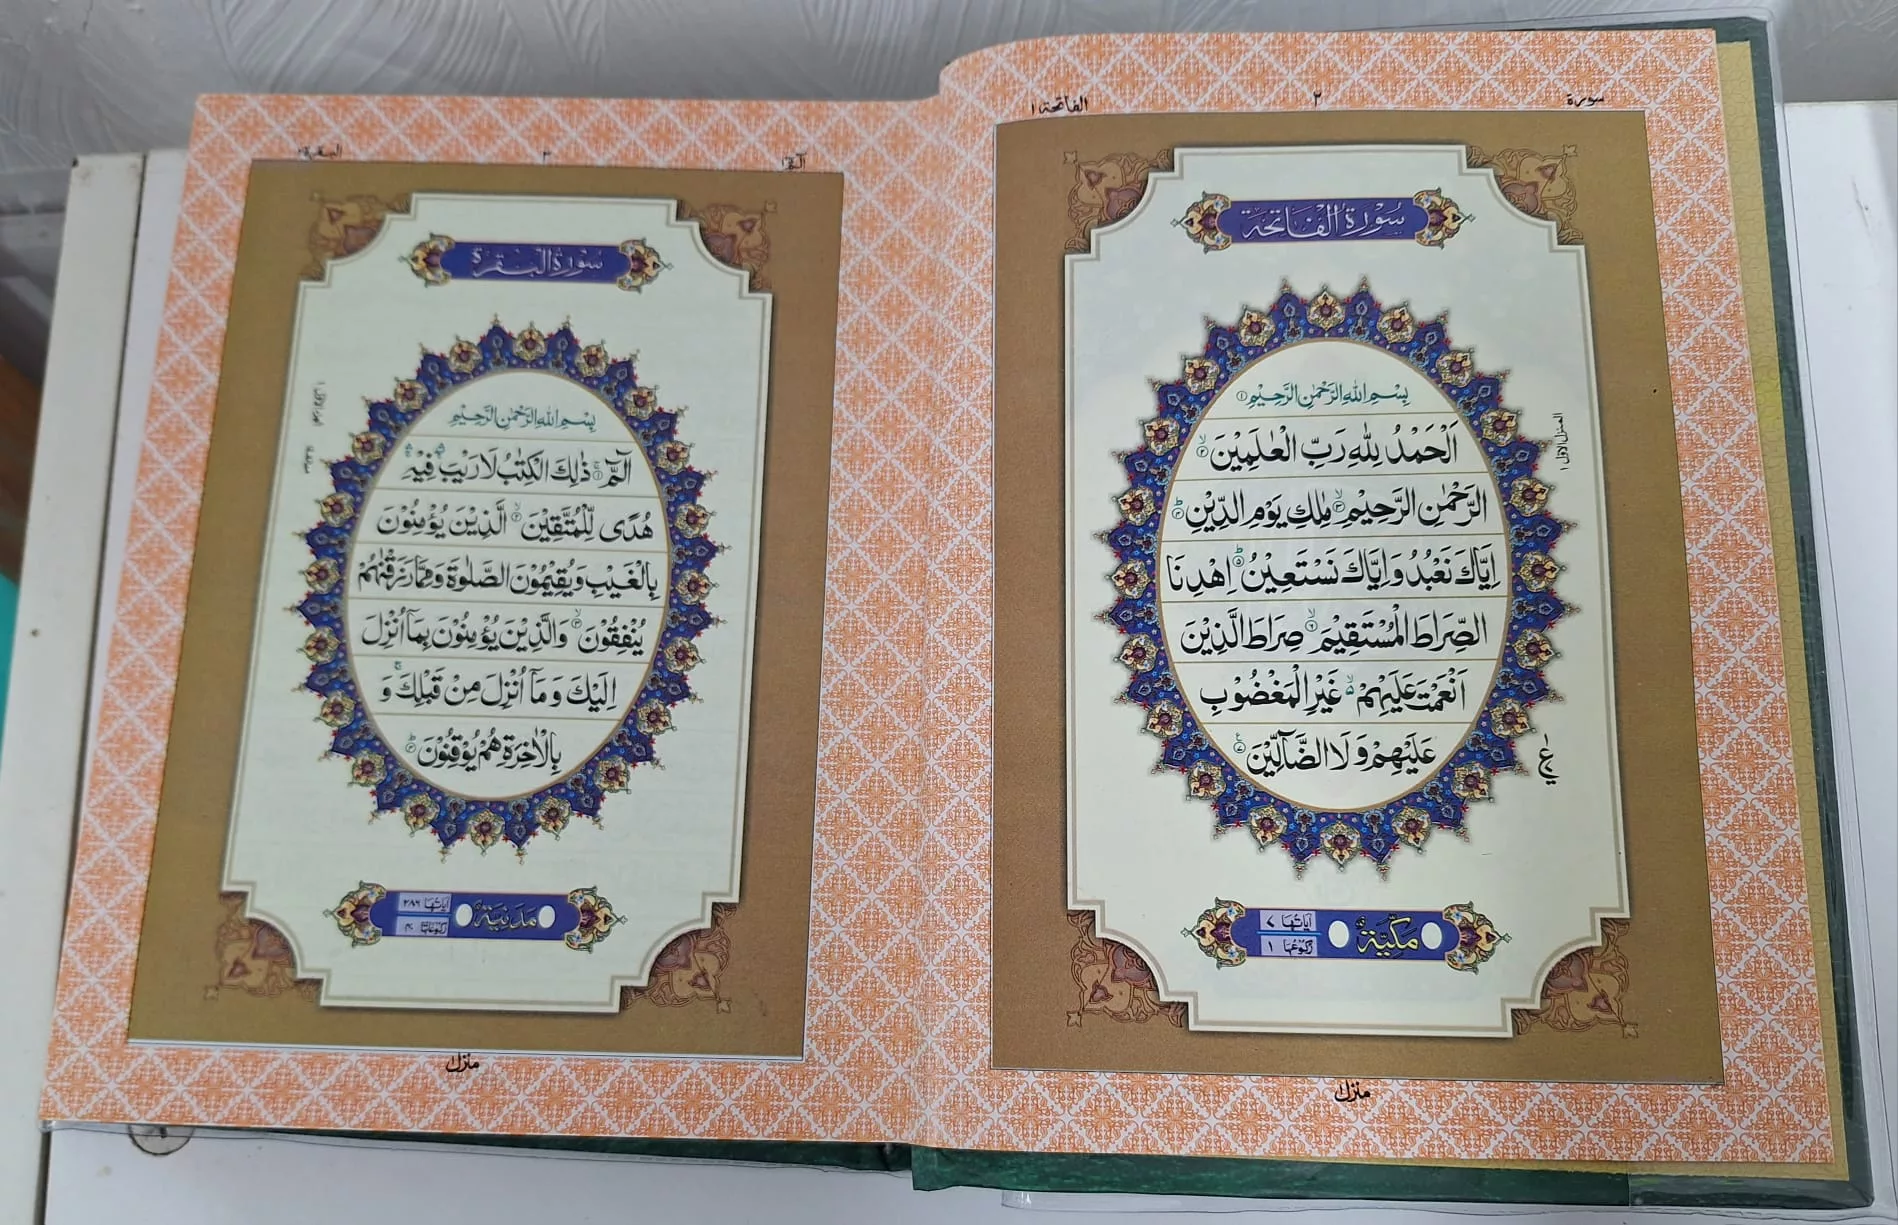 سورة
٢
الفاتحة ١
سُوْرَةُ الْفَاتِحَة
بِسْمِ اللهِ الرَّحْمٰنِ الرَّحِيْمِ ١
اَلْحَمْدُ لِلّٰهِ رَبِّ الْعٰلَمِيْنَ ۙ ٢
الرَّحْمٰنِ الرَّحِيْمِ ۙ ٣ مٰلِكِ يَوْمِ الدِّيْنِ ؕ ٤
اِيَّاكَ نَعْبُدُ وَ اِيَّاكَ نَسْتَعِيْنُ ؕ ٥ اِهْدِنَا
الصِّرَاطَ الْمُسْتَقِيْمَ ۙ ٦ صِرَاطَ الَّذِيْنَ
اَنْعَمْتَ عَلَيْهِمْ ۙ۵ غَيْرِ الْمَغْضُوْبِ
عَلَيْهِمْ وَ لَا الضَّآلِّيْنَ ٧
المنزل الاوّل ١
مَكِّيَّة
اٰيَاتُهَا ٧
رُكُوْعُهَا ١
منزل
الٓمّٓ
٣
البقرة ٢
سُوْرَةُ الْبَقَرَة
بِسْمِ اللهِ الرَّحْمٰنِ الرَّحِيْمِ
الٓمّٓ ١ ذٰلِكَ الْكِتٰبُ لَا رَيْبَ ۛ فِيْهِ ۛ
هُدًى لِّلْمُتَّقِيْنَ ۙ ٢ الَّذِيْنَ يُؤْمِنُوْنَ
بِالْغَيْبِ وَ يُقِيْمُوْنَ الصَّلٰوةَ وَ مِمَّا رَزَقْنٰهُمْ
يُنْفِقُوْنَ ۙ ٣ وَالَّذِيْنَ يُؤْمِنُوْنَ بِمَاۤ اُنْزِلَ
اِلَيْكَ وَ مَاۤ اُنْزِلَ مِنْ قَبْلِكَ ۚ وَ
بِالْاٰخِرَةِ هُمْ يُوْقِنُوْنَ ؕ ٤
مَدَنِيَّة
اٰيَاتُهَا ٢٨٦
رُكُوْعَاتُهَا ٤٠
منزل